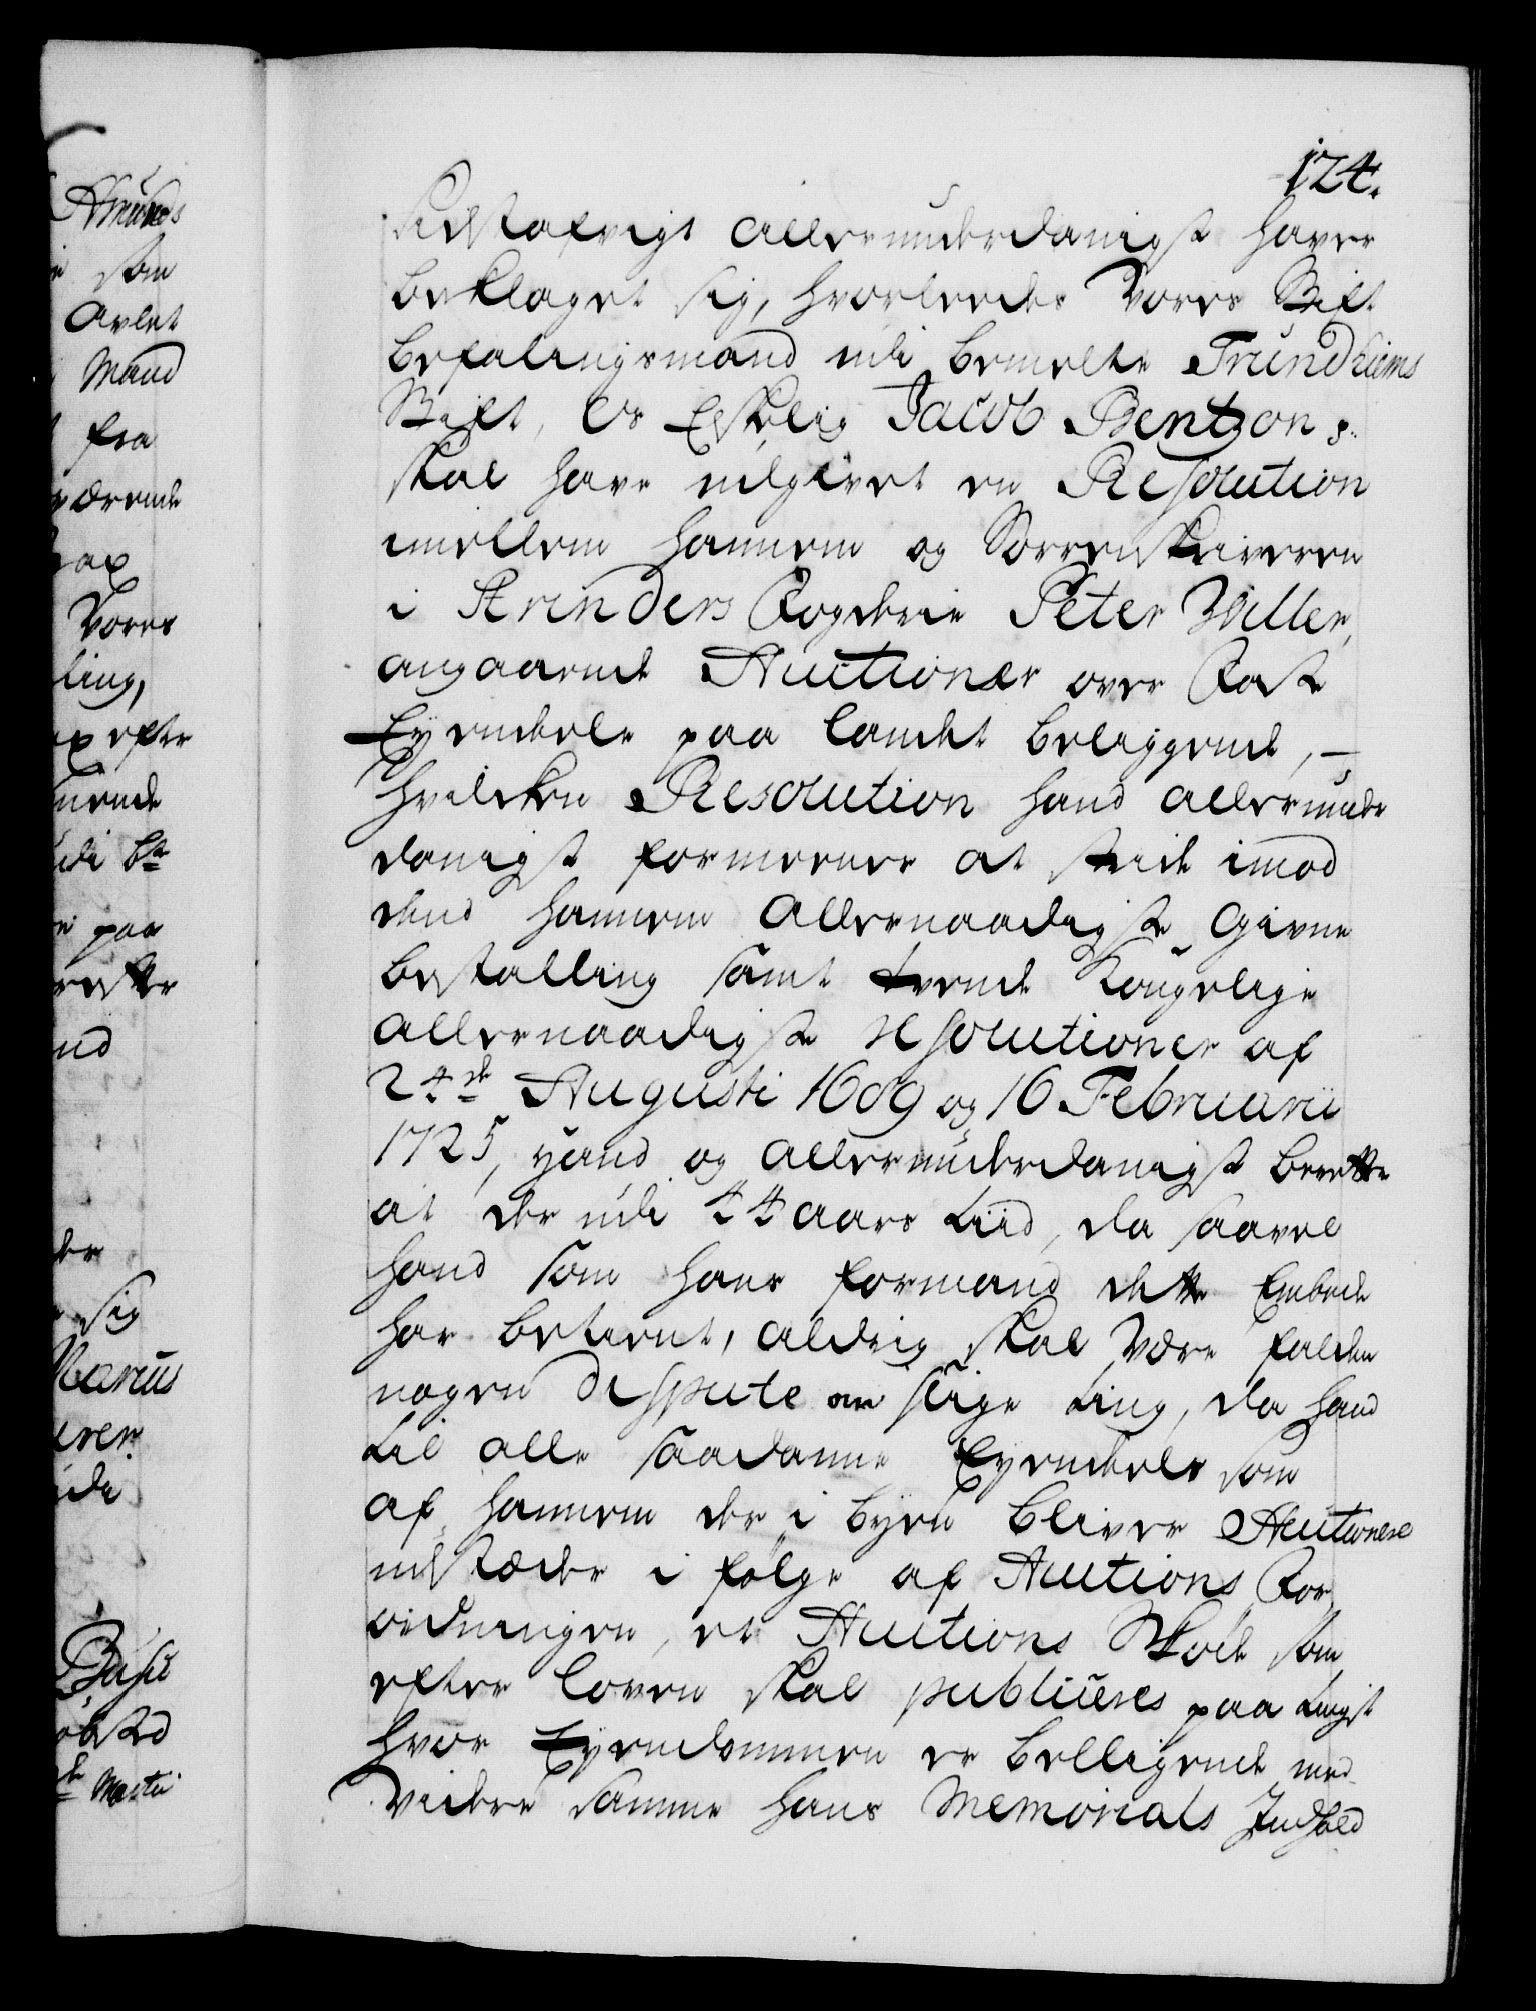 124.
allerunderdanigst haver
beklaget sig, hvorleedes Vores Stift
befalingsmand udi bemelte Trundhiems
Stift, Os Elskelig Jacob Bentzon,
skal have udgivet en Resolution
imellem hannem og Sorrenskriveren
i Strinders Fogderie Peter Weller,
angaaende Auctioner over Faste
Eyendeele paa Landet beliggende, –
hvilcken Resolution hand allerunder
danigst formeener at stride imod
dend hannem allernaadigste Givne
bestalling samt tvende Kongelige
allernaadigste Resolutioner af
24de Augusti 1689 og 16 Februarii
1725, hand og allerunderdanigst beretter
at der udi 44 aars tiid, da saavel
hand som hans formand dette Embede
har betient, aldrig skal være falden
nogen dispute om slige ting, da hand
til alle saadanne Eyendeele som
af hannem der i byen bliver Auctionered
udstæder i følge af Auctions For
ordningen, et Auctions Skiöde som
efter Loven skal publiceres paa tinget
hvor Eyendommen er belligende med
videre samme hans Memorials Indhold

Amunds
som
avlet
Mand
fra
værende
Vores
ling,
efter
udi
paa
nd
sig
Marcus
Martii